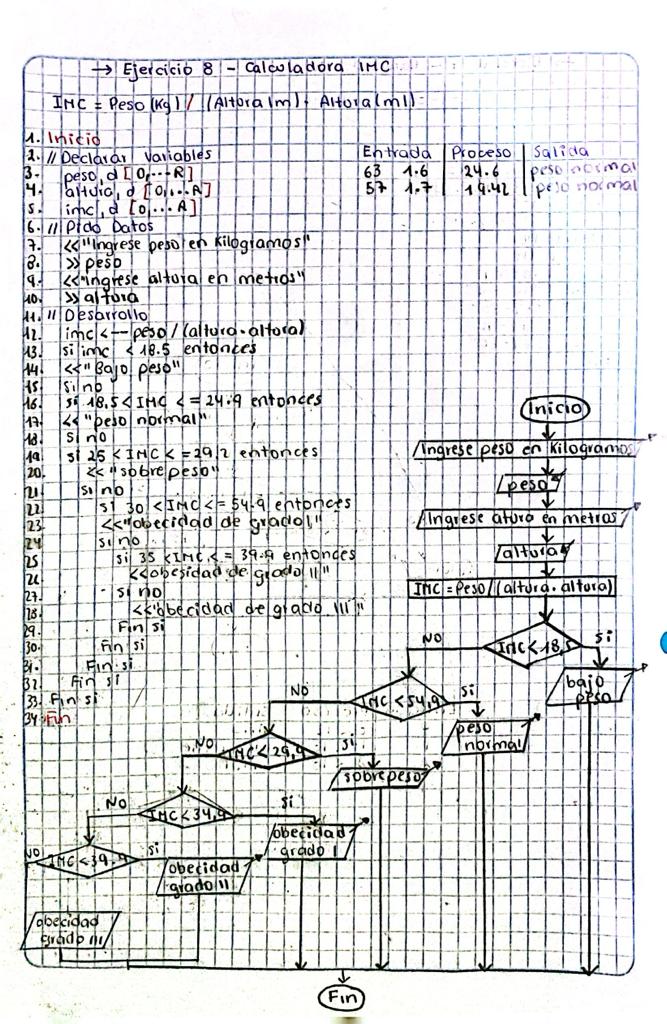 → Ejercicio 8 - Calculadora IMC
IMC = Peso (Kg) / (Altura (m) · Altura (m))
1. Inicio
2. // Declarar variables
3. peso, d [0,...R]
4. altura, d [0,...A]
5. imc, d [0,...A]
6. // Pido Datos
7. <<"Ingrese peso en Kilogramos"
8. >> peso
9. <<"Ingrese altura en metros"
10. >> altura
11. // Desarrollo
12. imc <-- peso / (altura · altura)
13. si imc < 18.5 entonces
14. <<"Bajo peso"
15. si no
16. si 18.5 < IMC <= 24.9 entonces
17. << "peso normal"
18. si no
19. si 25 < IMC <= 29.2 entonces
20. << "sobrepeso"
21. si no
22. si 30 < IMC <= 54.9 entonces
23 <<"obecidad de grado I"
24 si no
25 si 35 < IMC < = 39.9 entonces
26. <<obesidad de grado II"
27. si no
28. <<"obecidad de grado III"
29. Fin si
30. Fin si
31. Fin si
32. Fin si
33. Fin si
34. Fin
Entrada | Proceso | Salida
63 1.6 | 24.6 | peso normal
57 1.7 | 19.42 | peso normal
Inicio
Ingrese peso en Kilogramos
peso
Ingrese atura en metros
altura
IMC = Peso / (altura · altura)
IMC < 18,5
NO
si
bajo peso
IMC < 54,9
NO
si
peso normal
IMC < 29,9
NO
si
sobrepeso
IMC < 34,9
NO
si
obecidad grado I
IMC < 39.9
NO
si
obecidad grado II
obecidad grado III
Fin